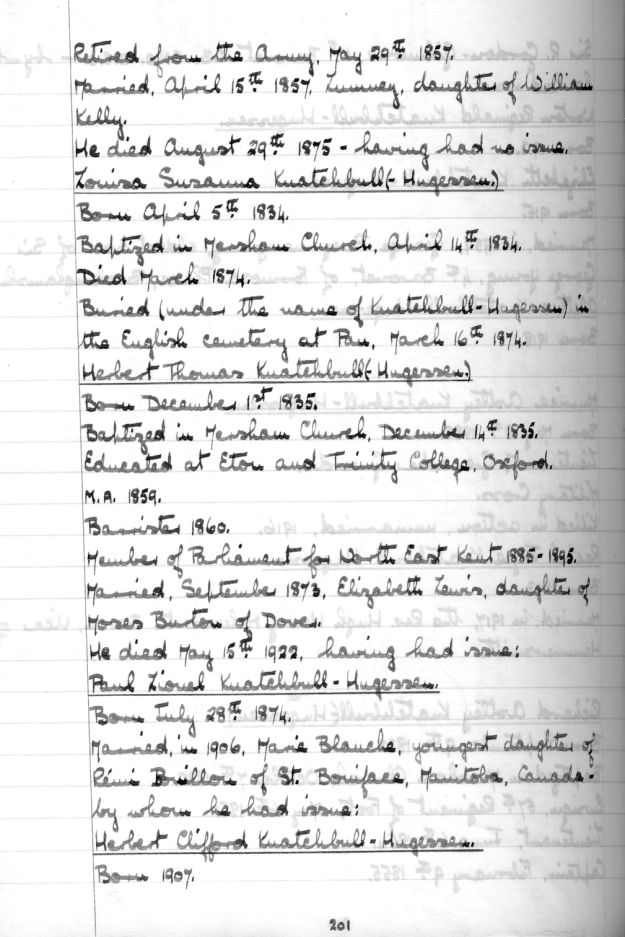 Retired from the Army, May 29th 1857.
Married, April 15th 1857, daughter of William
Kelly.
He died August 29th 1875 - having had no issue.
Louisa Susanna Knatchbull(-Hugessen.)
Born April 5th 1834.
Baptized in Mersham Church, April 14th 1834.
Died March 1874.
Buried (under the name of Knatchbull-Hugessen) in
the English cemetery at Pau, March 16th 1874.
Herbert Thomas Knatchbull(-Hugessen.)
Born December 1st 1835.
Baptized in Mersham Church, December 14th 1835.
Educated at Eton and Trinity College, Oxford.
M.A. 1859.
Barrister 1860.
Member of Parliament for North East Kent 1885-1895.
Married, September 1873, Elizabeth Lewis, daughter of
Moses Burton of Dover.
He died May 15th 1922, having had issue:
Paul Lionel Knatchbull-Hugessen.
Born July 28th 1874.
Married, in 1906, Marie Blanche, youngest daughter of
Rémi of St. Boniface, Manitoba, Canada -
by whom he had issue:
Herbert Clifford Knatchbull-Hugessen.
Born 1907.
201